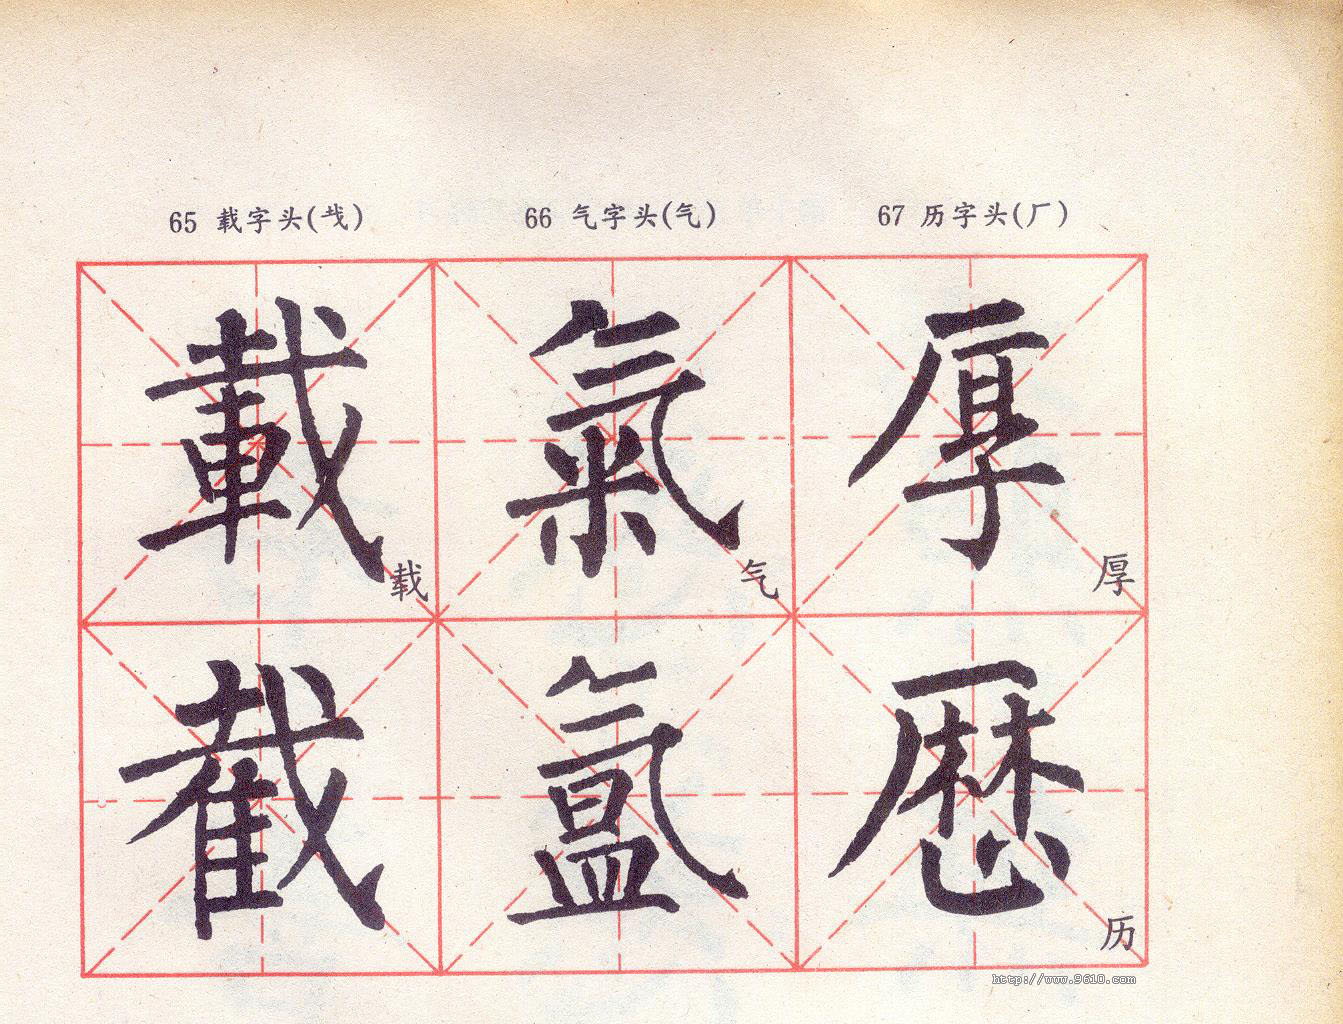 65 载字头(𢦏) 66 气字头(气) 67 历字头(厂)
載 氣 厚
载 气 厚
截 氳 歴
历
http://www.9610.com